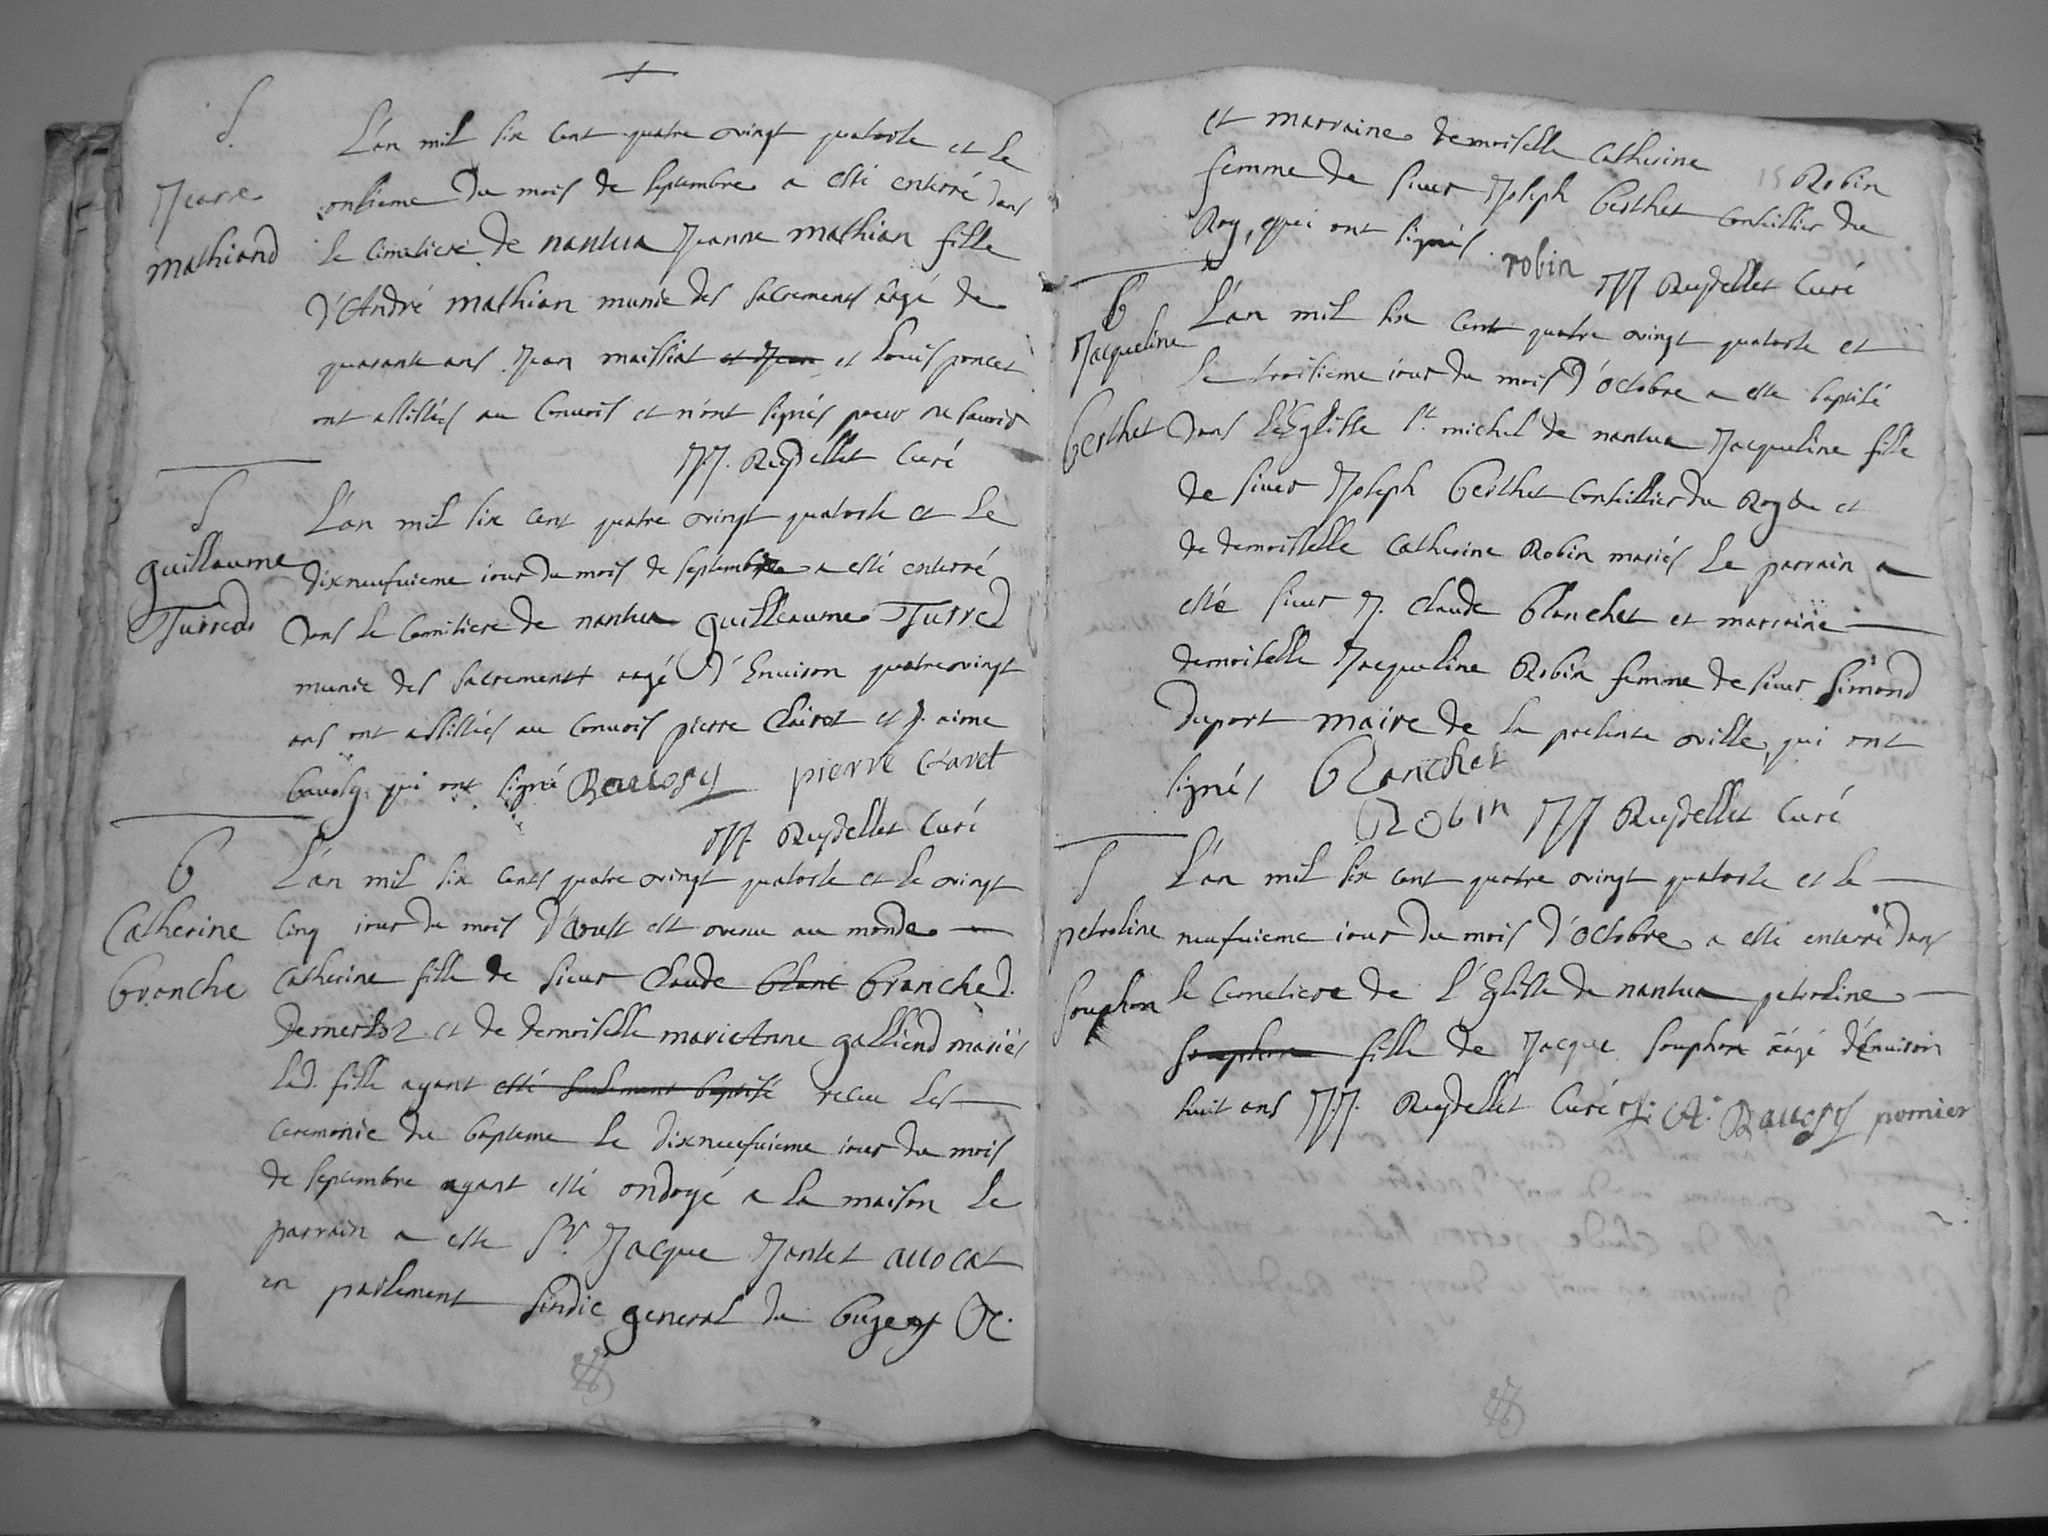 S.
Jeanne
Mathiand
L'an mil six cent quatre vingt quatorse et le
onsieme du mois de septembre a esté enterré dans
le cimetiere de nantua Jeanne mathian fille
d'André mathian munie des sacrements âagé de
quarante ans Jean maissiat et Jean et Louis poncet
ont assistés au convois et n'ont signés pour ne savoir
JJ. Reydellet Curé
S
guillaume
Turred
L'an mil six cent quatre vingt quatorse et le
dixneufuieme iour du mois de septembre a esté enterré
dans le Cemitiere de nantua guilleaume Turred
munie des sacrements aagé d'Enuiron quatrevingt
ans ont assistés au convois pierre Clairet et J. aime
bauosy qui ont signé Bauosy pierre Clavet
JJ. Reydellet Curé
b
Catherine
branche
L'an mil six cents quatre vingt quatorse et le vingt
Cinq iour du mois d'Aoust est venu au monde
Catherine fille de sieur Claude blanc branche d.
et de demoiselle marieAnne galliend mariés
Lad. fille ayant esté seulement baptisé receu les
ceremonie du bapteme le dixneufuieme iour du mois
de septembre ayant esté ondoyé a la maison le
parrain a este Sr. Jacque Jantet auocat
en parlement sindic general du bugey &c.
et marraine demoiselle Catherine Robin
femme de sieur Joseph berthet conseillier du
Roy, qui ont signés robin JJ Reydellet Curé
b
Jacqueline
berthet
L'an mil six cent quatre vingt quatorse et
le troisieme iour du mois d'octobre a este baptisé
dans L'Eglisse St. michel de nantua Jacqueline fille
de sieur Joseph berthet conseillier du Roy et
de demoiselle Catherine Robin mariés le parrain a
esté sieur J. Claude blanchet et marraine
demoiselle Jacqueline Robin femme de sieur Simond
duport maire de la presente ville, qui ont
signés Blanchet
Robin JJ Reydellet Curé
S
petroline
souphon
L'an mil six cent quatre vingt quatorse et le
neufuieme iour du mois d'octobre a esté enterré dans
le Cemetiere de l'Eglisse de nantua petroline
souphon fille de Jacque souphon âagé d'énuiron
huit ans JJ. Reydellet Curé A. Bauosy pornier